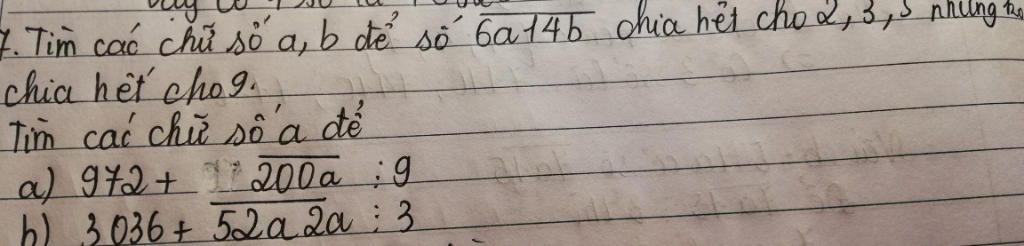 7. Tìm các chữ số a, b để số 6a14b chia hết cho 2, 3, 5 nhưng
chia hết cho 9.
Tìm các chữ số a để
a) 972 + 200a ⋮ 9
b) 3036 + 52a2a ⋮ 3